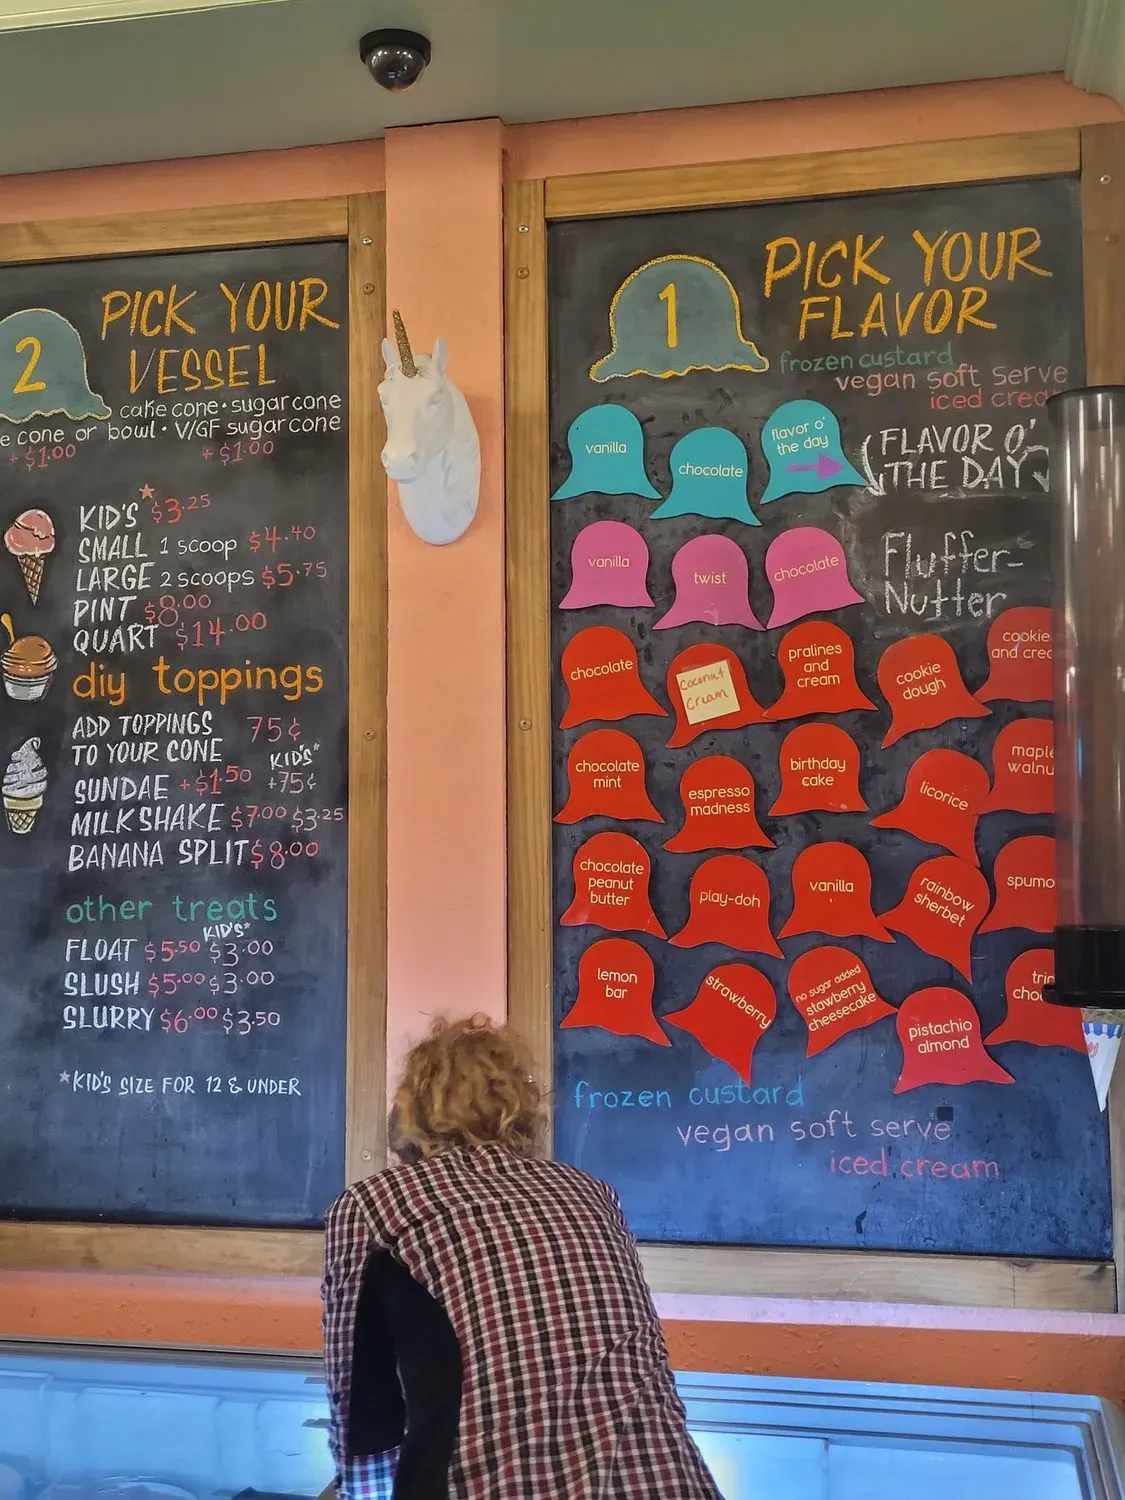 2
PICK YOUR
VESSEL
cake cone • sugar cone
cone or bowl • V/GF sugar cone
+ $1.00 + $1.00
KID'S* $3.25
SMALL 1 scoop $4.40
LARGE 2 scoops $5.75
PINT $8.00
QUART $14.00
diy toppings
ADD TOPPINGS 75¢
TO YOUR CONE
KID'S*
SUNDAE +$1.50 +75¢
MILKSHAKE $7.00 $3.25
BANANA SPLIT $8.00
other treats
KID'S*
FLOAT $5.50 $3.00
SLUSH $5.00 $3.00
SLURRY $6.00 $3.50
*KID'S SIZE FOR 12 & UNDER
1
PICK YOUR
FLAVOR
frozen custard
vegan soft serve
iced
vanilla
chocolate
flavor o'
the day
FLAVOR O'
THE DAY
Fluffer-
Nutter
vanilla
twist
chocolate
chocolate
Coconut
Cream
pralines
and
cream
cookie
dough
cookie
and
chocolate
mint
espresso
madness
birthday
cake
licorice
maple
chocolate
peanut
butter
play-doh
vanilla
rainbow
sherbet
lemon
bar
strawberry
no sugar added
stawberry
cheesecake
pistachio
almond
frozen custard
vegan soft serve
iced cream